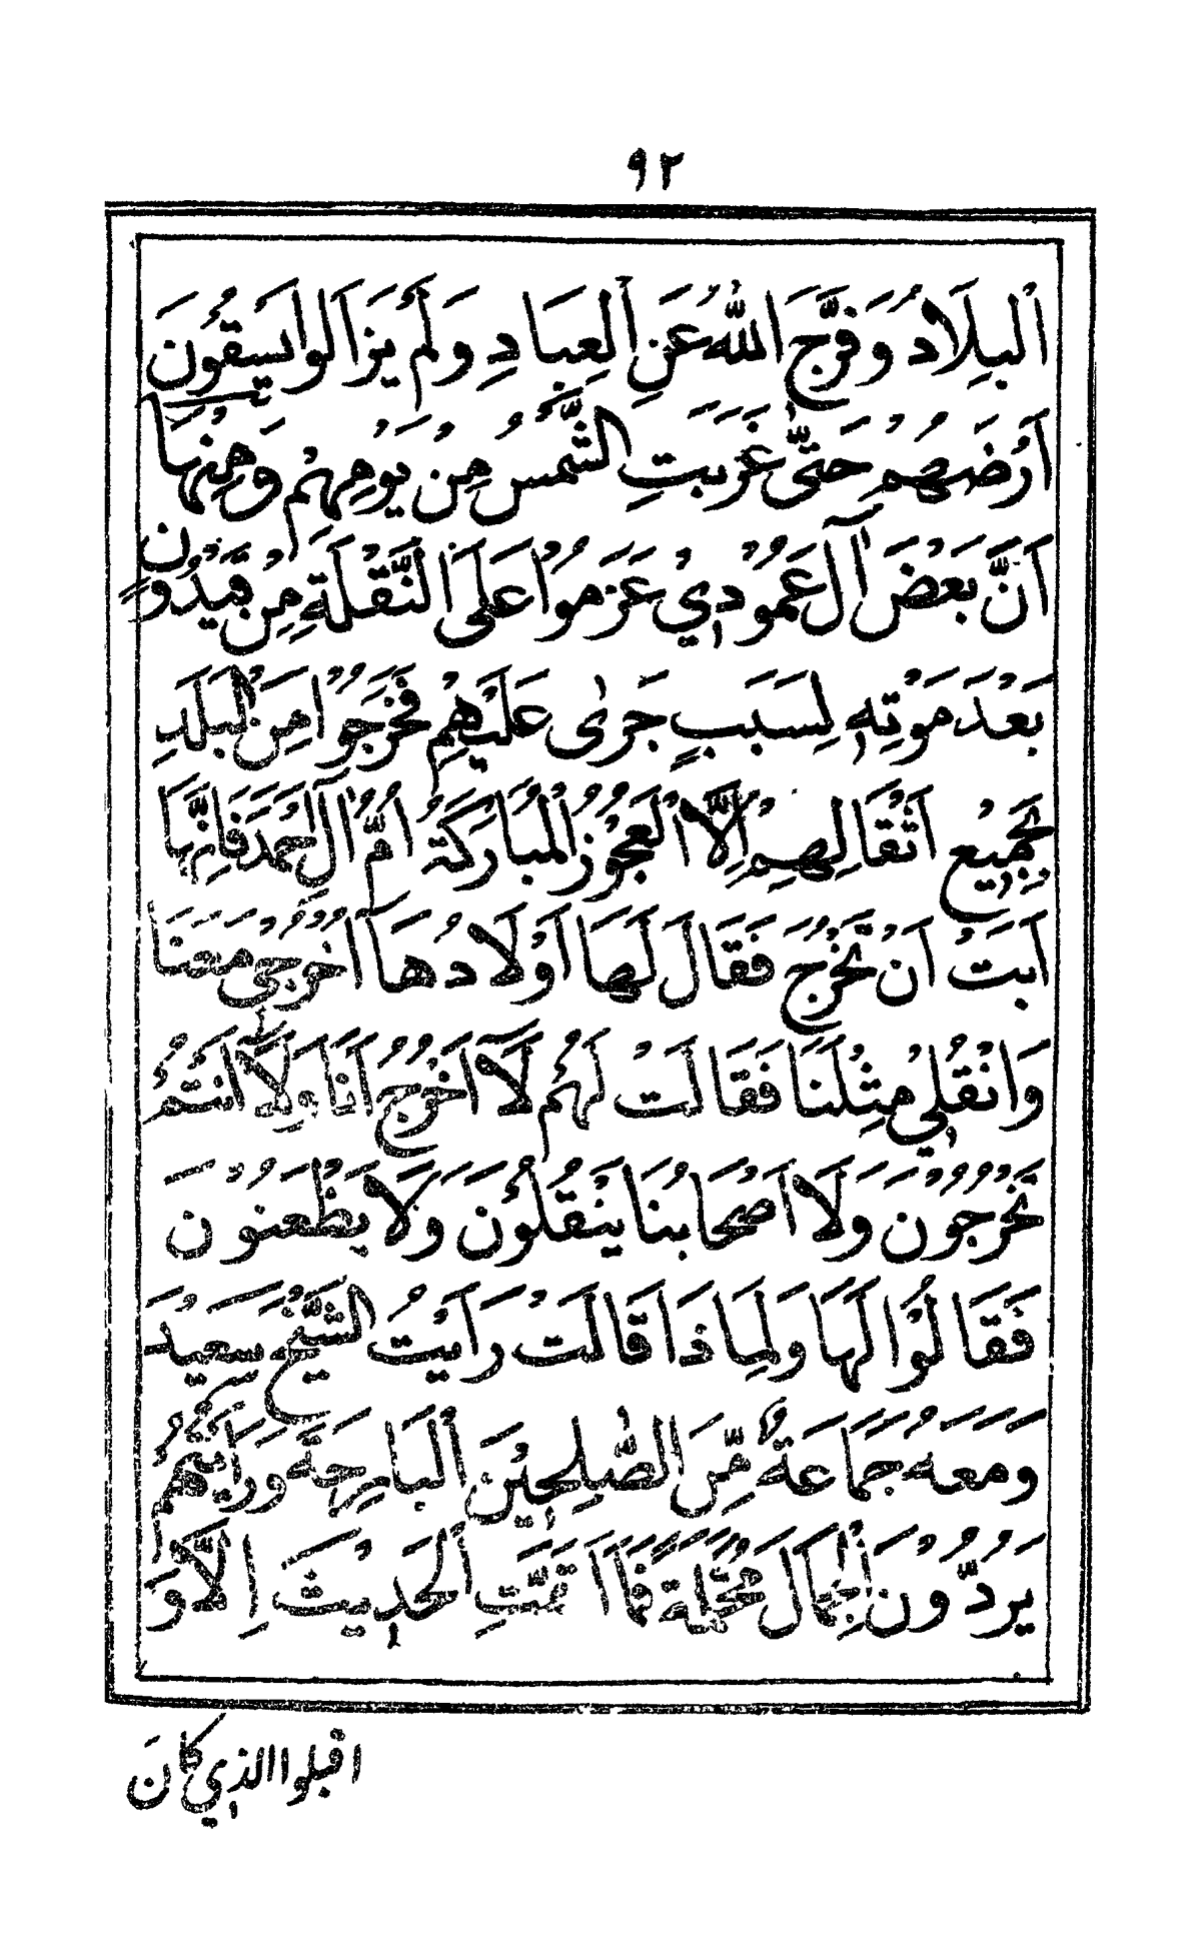 ٩٢
اَلْبِلَادُ وَفَرَّجَ اللّٰهُ عَنِ الْعِبَادِ وَلَمْ يَزَالُوا يَسْقُوْنَ
اَرْضَهُمْ حَتّٰى غَرَبَتِ الشَّمْسُ مِنْ يَوْمِهِمْ وَمِنْهَا
اَنَّ بَعْضَ آلِ عَمُوْدِيْ عَزَمُوْا عَلَى النَّقْلَةِ مِنْ قَيْدُوْنَ
بَعْدَ مَوْتِهٖ لِسَبَبٍ جَرٰى عَلَيْهِمْ فَخَرَجُوْا مِنَ الْبَلَدِ
بِجَمِيْعِ اَثْقَالِهِمْ اِلَّا الْعَجُوْزُ الْمُبَارَكَةُ اُمُّ آلِ اَحْمَدَ فَاِنَّهَا
اَبَتْ اَنْ تَخْرُجَ فَقَالَ لَهَا اَوْلَادُهَا اُخْرُجِيْ مَعَنَا
وَانْقُلِيْ مِثْلَنَا فَقَالَتْ لَهُمْ لَآ اَخْرُجُ اَنَا وَلَآ اَنْتُمْ
تَخْرُجُوْنَ وَلَا اَصْحَابُنَا يَنْقُلُوْنَ وَلَا يَظْعَنُوْنَ
فَقَالُوْا لَهَا وَلِمَاذَا قَالَتْ رَاَيْتُ الشَّيْخَ سَعِيْدَ
وَمَعَهُ جَمَاعَةٌ مِّنَ الصّٰلِحِيْنَ الْبَارِحَةَ وَرَاَيْتُهُمْ
يَرُدُّوْنَ الْجِمَالَ مُحَمَّلَةً فَمَا اَتَمَّتِ الْحَدِيْثَ اِلَّا وَ
اقبلوا الذي كانَ